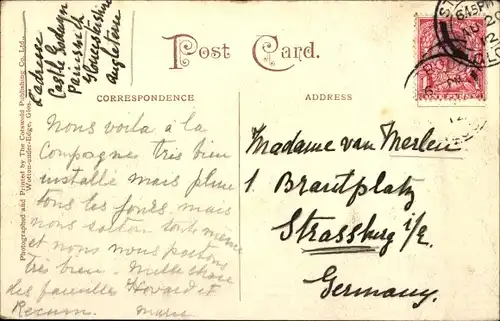 L'adresse
Castle Godwyn
Painswick
Gloucestershire
Angleterre
Post Card.
CORRESPONDENCE
ADDRESS
Photographed and Printed by The Cotswold Publishing Co. Ltd.,
Wotton-under-Edge, Glos.
Nous voila à la
Compagnes très bien
installé mais pluie
tous les jours, mais
nous sortons tout même
et nous nous portons
très bien. Mille chose
des familles Howard et
Marie
Madame van Merlen
1. Brantplatz
Strassburg i/E.
Germany.
6.45 PM